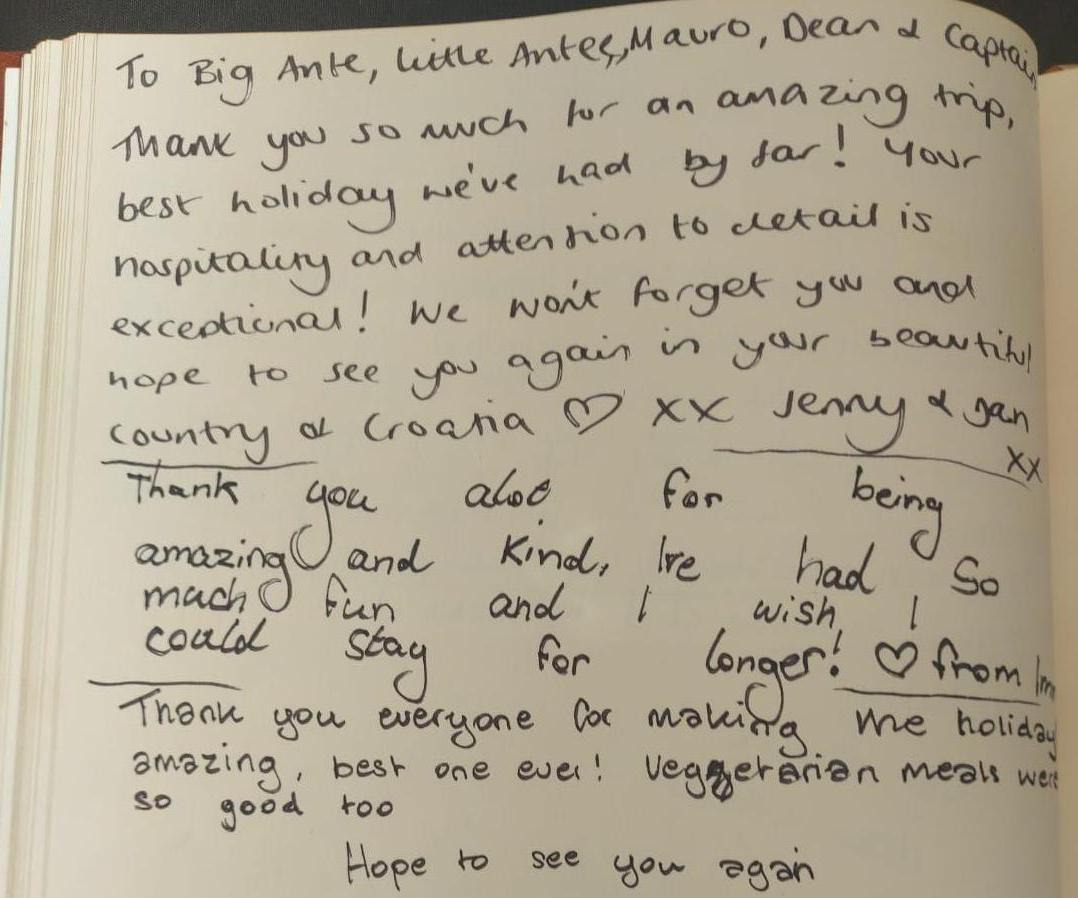 To Big Ante, little Antes, Mauro, Dean & Captain
Thank you so much for an amazing trip,
best holiday we've had by far! Your
hospitality and attention to detail is
exceptional! We won't forget you and
hope to see you again in your beautiful
country of Croatia ♡ xx Jenny & Jan
xx
Thank you also for being
amazing and kind, I've had so
much fun and I wish I
could stay for longer! ♡ from
Thank you everyone for making me holiday
amazing, best one ever! Veggeterian meals were
so good too
Hope to see you again